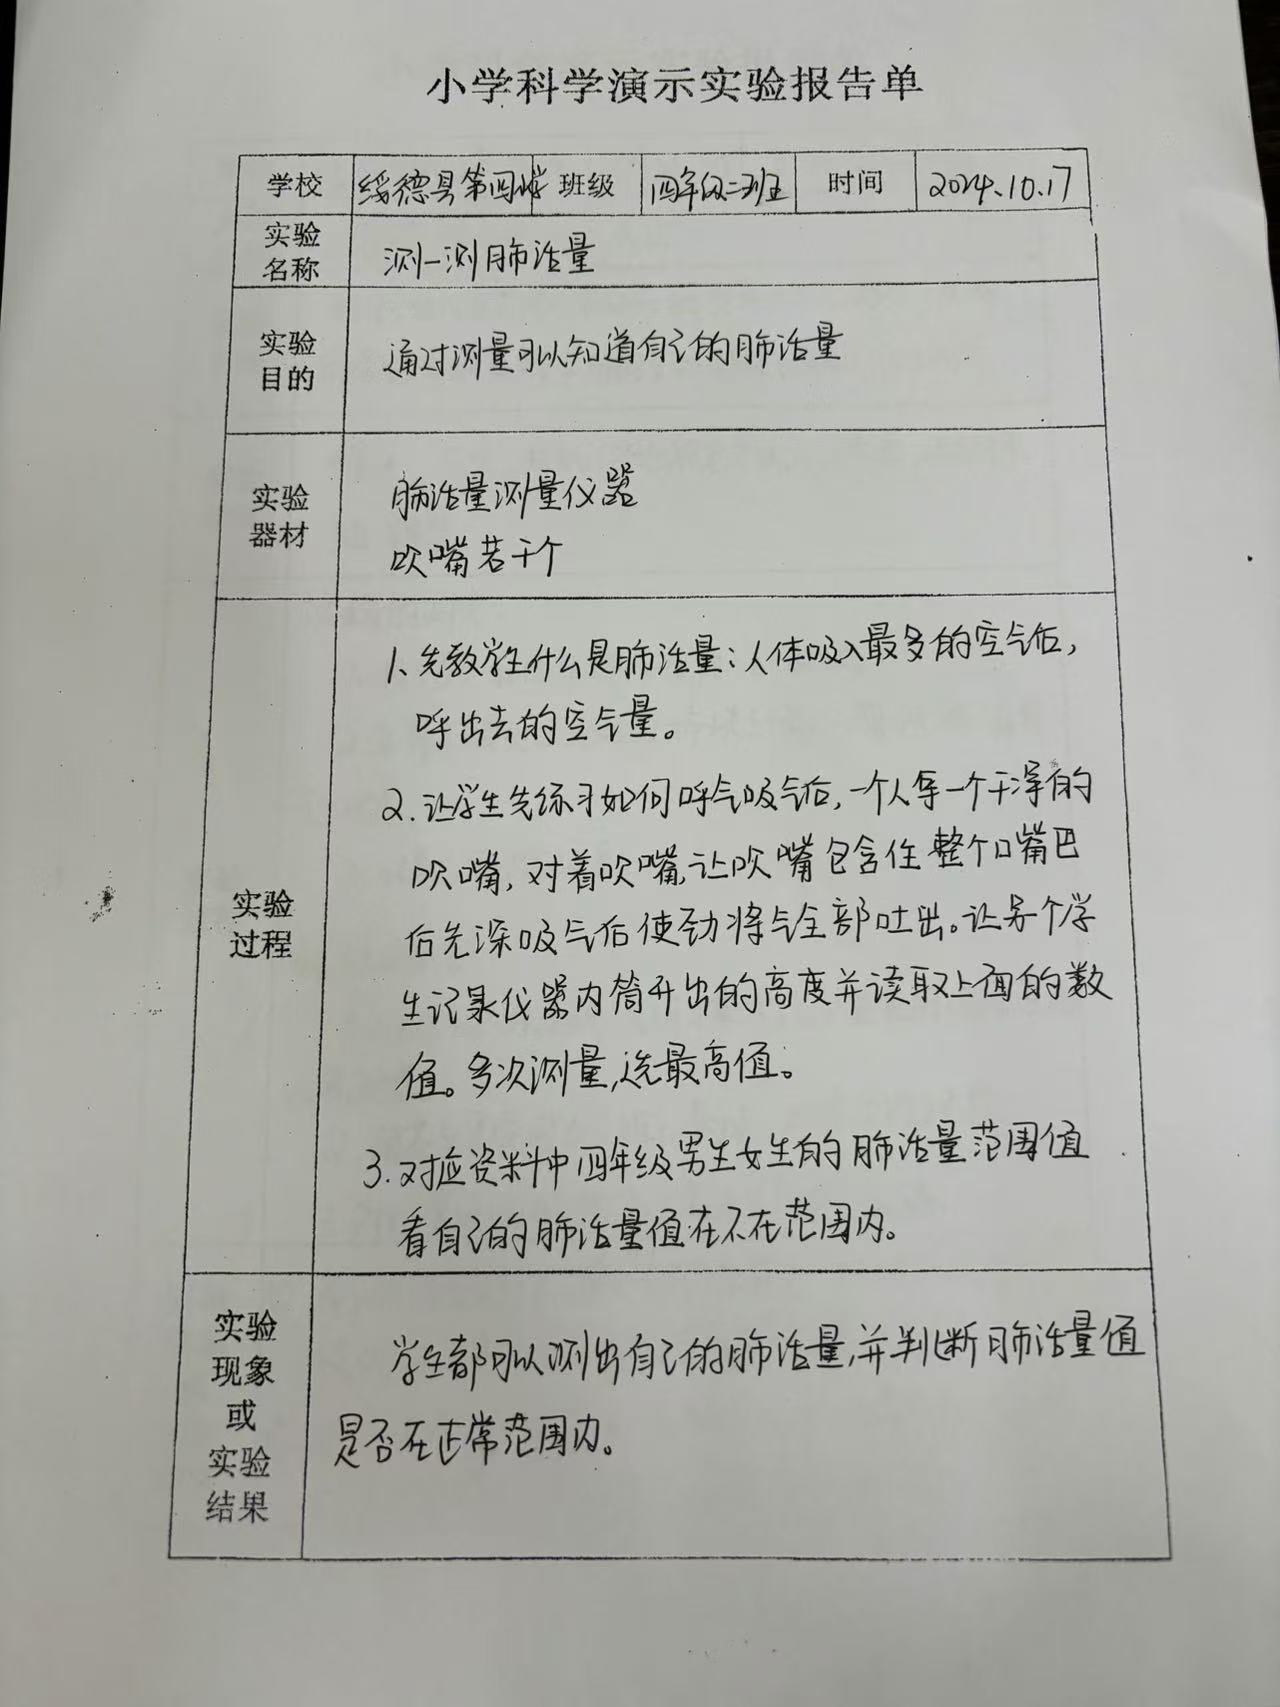 小学科学演示实验报告单
学校 绥德县第四小学 班级 四年级二班 时间 2024.10.17
实验名称 测一测肺活量
实验目的 通过测量可以知道自己的肺活量
实验器材 肺活量测量仪器
吹嘴若干个
实验过程
1、先教学生什么是肺活量：人体吸入最多的空气后，
呼出去的空气量。
2.让学生先练习如何呼气吸气后，一个人拿一个干净的
吹嘴，对着吹嘴，让吹嘴包含住整个口嘴巴
后先深吸气后使劲将气全部吐出。让另个学
生记录仪器内筒升出的高度并读取上面的数
值。多次测量，选最高值。
3.对应资料中四年级男生女生的肺活量范围值
看自己的肺活量值在不在范围内。
实验现象或实验结果
学生都可以测出自己的肺活量，并判断肺活量值
是否在正常范围内。